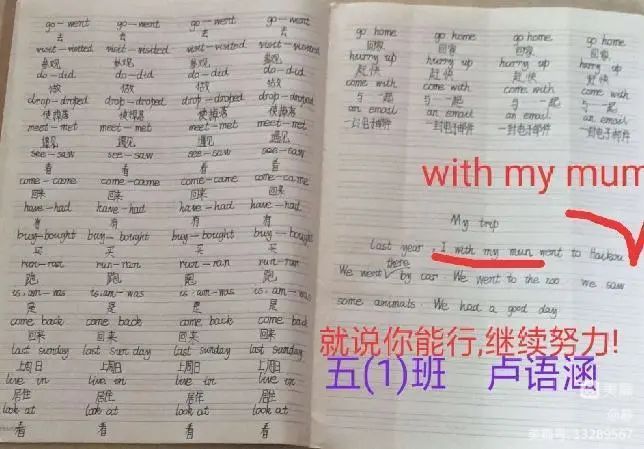 go-went go-went go-went go-went
去 去 去 去
visit-visited visit-visited visit-visited visit-visited
参观 参观 参观 参观
do-did do-did do-did do-did
做 做 做 做
drop-droped drop-droped drop-droped drop-droped
使掉落 使掉落 使掉落 使掉落
meet-met meet-met meet-met meet-met
遇见 遇见 遇见 遇见
see-saw see-saw see-saw see-saw
看 看 看 看
come-came come-came come-came come-came
回来 回来 回来 回来
have-had have-had have-had have-had
有 有 有 有
buy-bought buy-bought buy-bought buy-bought
买 买 买 买
run-ran run-ran run-ran run-ran
跑 跑 跑 跑
is,am-was is,am-was is,am-was is,am-was
是 是 是 是
come back come back come back come back
回来 回来 回来 回来
last sunday last sunday last sunday last sunday
上周日 上周日 上周日 上周日
live in live in live in live in
居住 居住 居住 居住
look at look at look at look at
看 看 看 看
go home go home go home go home
回家 回家 回家 回家
hurry up hurry up hurry up hurry up
赶快 赶快 赶快 赶快
come with come with come with come with
与一起 与一起 与一起 与一起
an email an email an email an email
一封电子邮件 一封电子邮件 一封电子邮件 一封电子邮件
with my mum
My trip
Last year, I with my mun went to Haikou
there
We went by car. We went to the zoo we saw
some animals. We had a good day
就说你能行,继续努力!
五(1)班 卢语涵
美篇
美篇号: 33289567